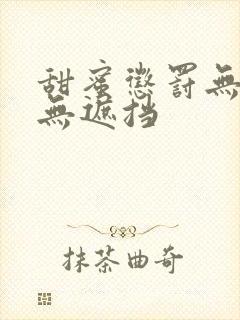 甜蜜懲罰無
無遮挡
抹茶曲奇